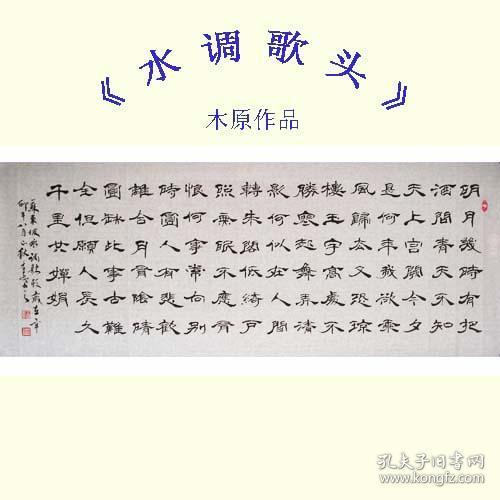 《水调歌头》
木原作品
明月幾時有把
酒問青天不知
天上宮闕今夕
是何年我欲乘
風歸去又恐瓊
樓玉宇高處不
勝寒起舞弄清
影何似在人間
轉朱閣低綺戶
照無眠不應有
恨何事常向別
時圓人有悲歡
離合月有陰晴
圓缺此事古難
全但願人長久
千里共嬋娟
蘇東坡水調歌頭歲在辛
卯年八月
孔夫子旧书网
www.kongfz.com